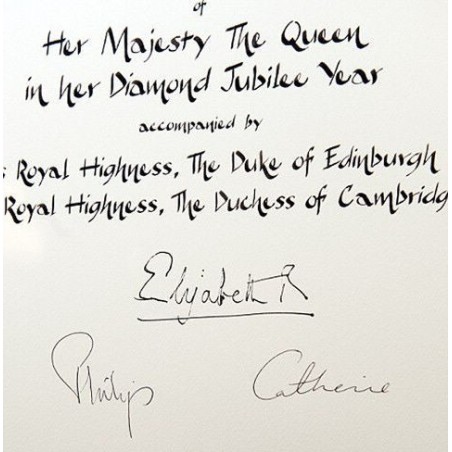 of
Her Majesty The Queen
in her Diamond Jubilee Year
accompanied by
s Royal Highness, The Duke of Edinburgh
Royal Highness, The Duchess of Cambridg
Elizabeth R
Philip
Catherine